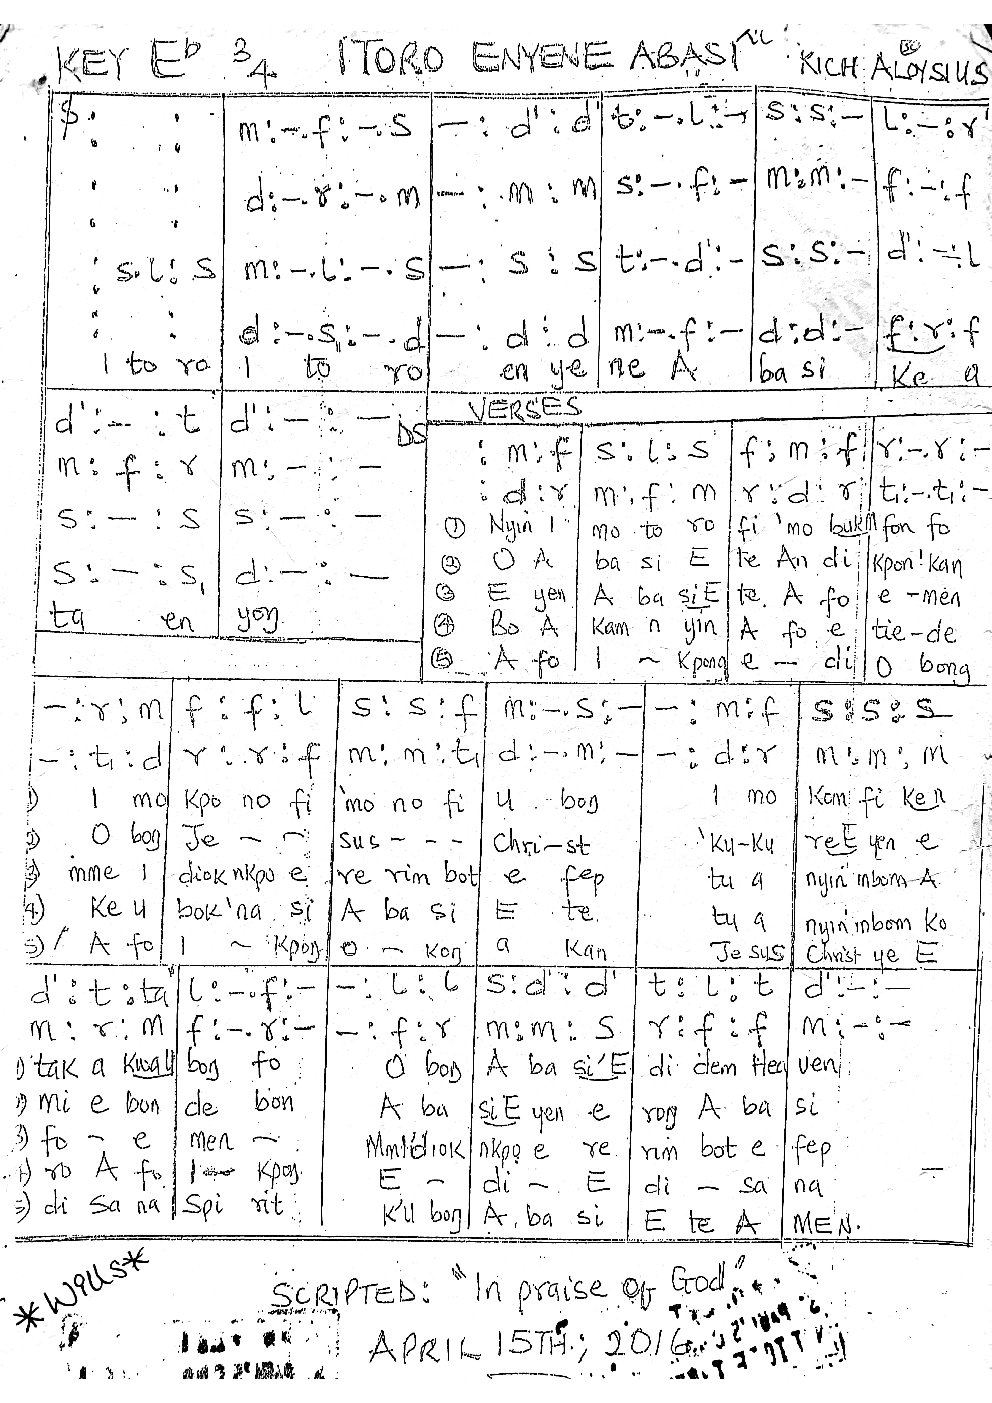 KEY Eb 3/4 ITORO ENYENE ABASI KICH ALOYSIUS
$: : m:-.f:-.s -: d':d' t:-.l:- s:s:- l:-:r'
: : d:-.r:-.m -: m:m s:-.f:- m:m:- f:-:f
: s.l:s m:-.l:-.s -: s:s t:-.d':- s:s:- d':-:l
: : d:-.s,:-.d -: d:d m:-.f:- d:d:- f:r:f
I to ro I to ro en ye ne A ba si Ke a
d':-:t d':-:- DS
m:f:r m:-:-
s:-:s s:-:-
s:-:s, d:-:-
ta en yong
VERSES
: m:f s:l:s f:m:f r:-.r:-
: d:r m:f:m r:d:r t,:-.t,:-
① Nyin I mo to ro fi 'mo bukM fon fo
② O A ba si E te An di Kpon'kan
③ E yen A ba siE te. A fo e -men
④ Bo A Kam n yin A fo e tie-de
⑤ A fo I ~ Kpong e - di O bong
-:r:m f:f:l s:s:f m:-.s:- -:m:f s:s:s
-:t,:d r:r:f m:m:t, d:-.m:- -:d:r m:m:m
1) I mo Kpo no fi 'mo no fi U bong I mo Kom fi Ken
2) O bong Je - - sus - - - Chri-st 'Ku-Ku reE yen e
3) mme I diok nkpo e re rin bot e fep tu a nyin mbom A
4) Ke u bok 'na si A ba si E te tu a nyin mbom Ko
5) A fo I ~ Kpong O - Kon a Kan Jesus Christ ye E
d':t:ta l:-.f:- -:l:l s:d':d' t:l:t d':-:-
m:r:m f:-.r:- -:f:r m:m:s r:f:f m:-:-
1) tak a KwaU bong fo O bong A ba si'E di dem Hea ven
2) mi e bon de bon A ba siE yen e rong A ba si
3) fo - e men - Mmidiok nkpo e re rin bot e fep
4) ro A fo I - Kpong E - di - E di - sa na
5) di Sa na Spi rit K'U bong A. ba si E te A MEN.
*Wills*
SCRIPTED: "In praise of God"
APRIL 15TH; 2016